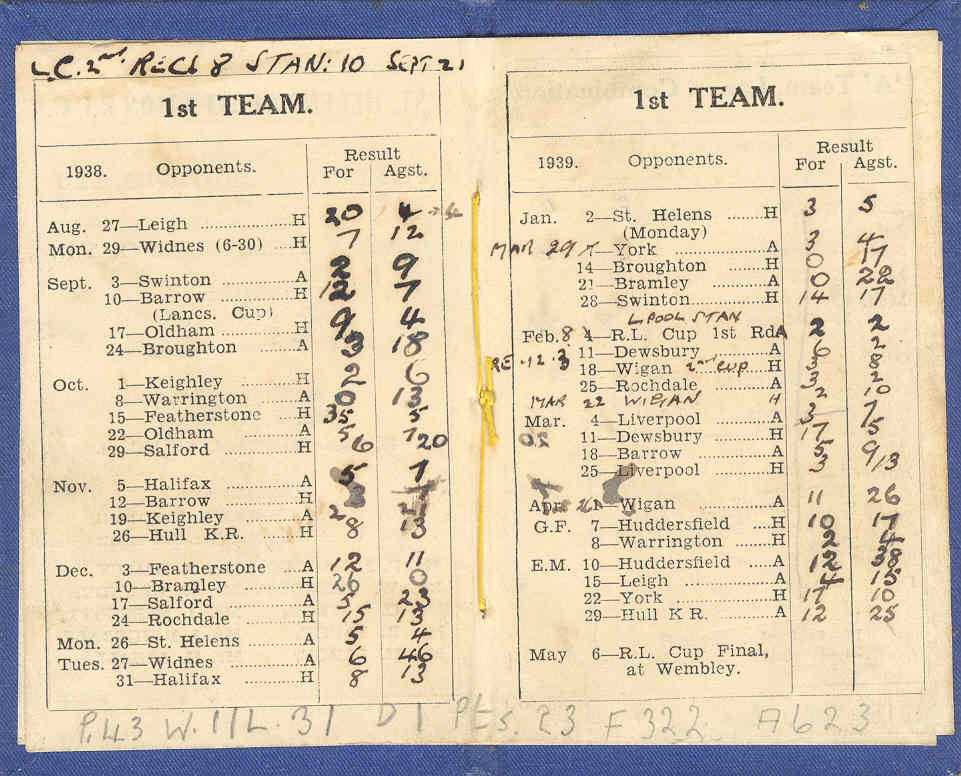 L.C. 2nd RECS 8 STAN: 10 SEPT 21
1st TEAM.
1938. Opponents. Result
For Agst.
Aug. 27—Leigh ..................H 20 4
Mon. 29—Widnes (6-30) ....H 7 12
Sept. 3—Swinton ..............A 2 9
10—Barrow ..............H 12 7
(Lancs. Cup)
17—Oldham ................H 9 4
24—Broughton .........A 3 18
Oct. 1—Keighley ............H 2 6
8—Warrington .........A 0 13
15—Featherstone ....H 35 5
22—Oldham ..............A 5 7
29—Salford ..............H 6 20
Nov. 5—Halifax ..............A 5 7
12—Barrow ..............H
19—Keighley ............A 2 21
26—Hull K.R. ..........H 8 13
Dec. 3—Featherstone ....A 12 11
10—Bramley ..............H 26 0
17—Salford ..............A 5 23
24—Rochdale ............H 15 13
Mon. 26—St. Helens ..........A 5 4
Tues. 27—Widnes ..............A 6 46
31—Halifax ..............H 8 13
1st TEAM.
1939. Opponents. Result
For Agst.
Jan. 2—St. Helens .......H 3 5
(Monday)
MAR 29 7—York ................A 3 4
14—Broughton ..........H 0 17
21—Bramley ..............A 0 22
28—Swinton ..............H 14 17
LPOOL STAN
Feb. 8 4—R.L. Cup 1st Rd A 2 2
RE .12.3 11—Dewsbury ............A 6 3
18—Wigan 2nd CUP H 3 8
25—Rochdale ............A 3 2
MAR 22 WIGAN H 2 10
Mar. 4—Liverpool ............A 3 7
11—Dewsbury ............H 17 15
18—Barrow ..............A 5 9
25—Liverpool ............H 3 13
Apr. 1—Wigan ................A 11 26
G.F. 7—Huddersfield ....H 10 17
8—Warrington ........H 2 4
E.M. 10—Huddersfield .....A 12 38
15—Leigh ................A 4 15
22—York ..................H 17 10
29—Hull K R. ............A 12 25
May 6—R.L. Cup Final,
at Wembley.
P.43 W.11 L.31 D1 Pts. 23 F 322 A 623